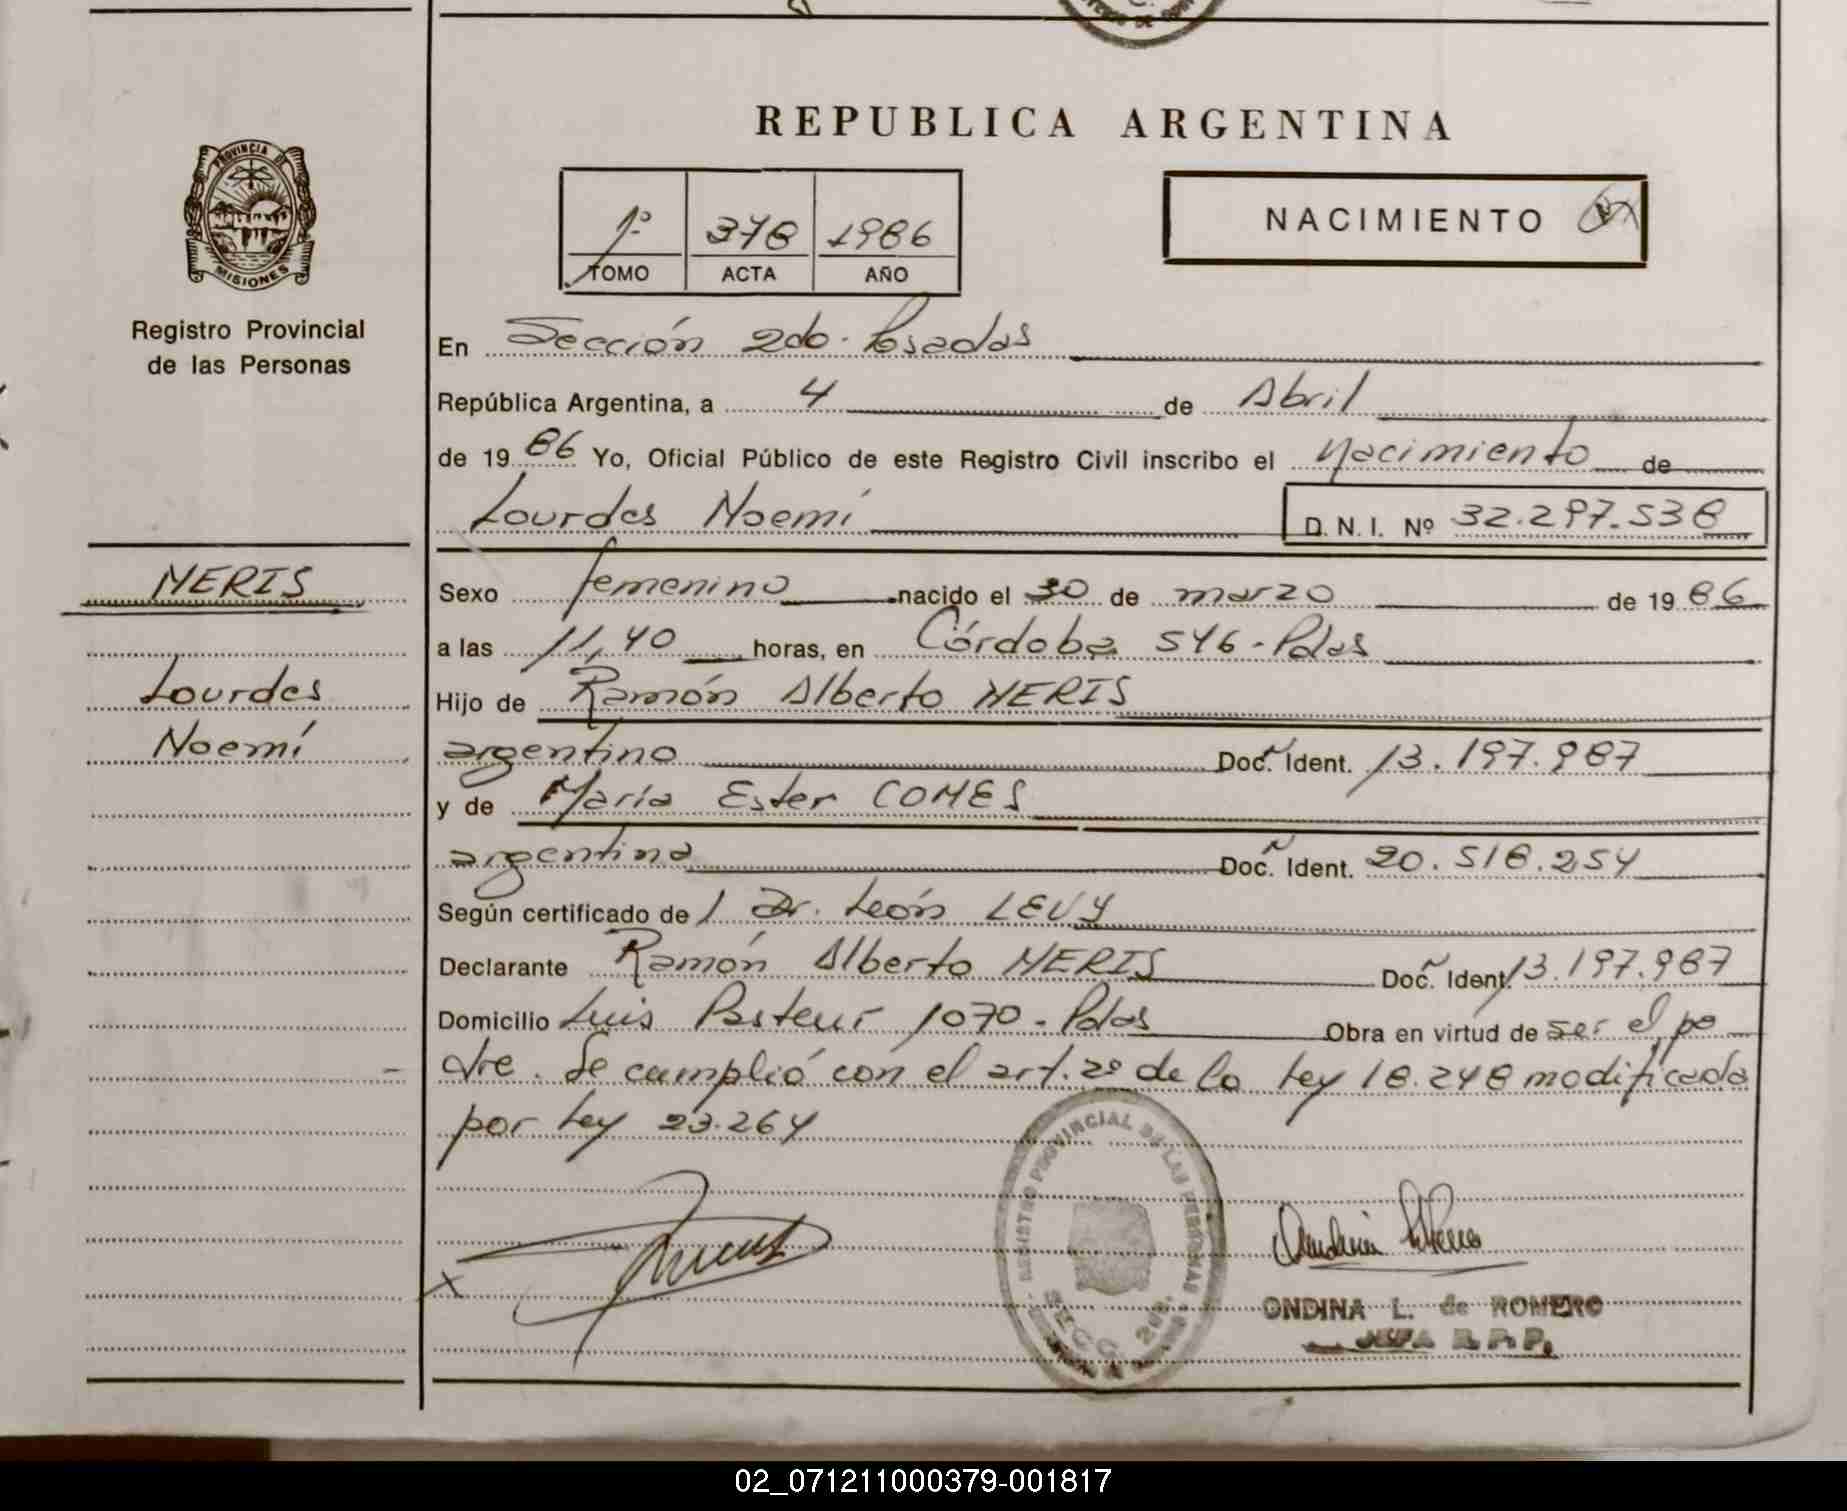 REPUBLICA ARGENTINA
PROVINCIA DE
MISIONES
Registro Provincial
de las Personas
1º 378 1986
TOMO ACTA AÑO
NACIMIENTO
En Sección 2da. Posadas
República Argentina, a 4 de Abril
de 1986 Yo, Oficial Público de este Registro Civil inscribo el Nacimiento de
Lourdes Noemí D. N. I. Nº 32.297.538
MERIS
Lourdes
Noemí
Sexo femenino nacido el 30 de marzo de 1986
a las 11,40 horas, en Córdoba 546 - Pdas
Hijo de Ramón Alberto MERIS
argentino Doc. Ident. 13.197.987
y de María Ester COMES
argentina Doc. Ident. 20.518.254
Según certificado de l Dr. León LEVY
Declarante Ramón Alberto MERIS Doc. Ident. 13.197.987
Domicilio Luis Pasteur 1070 - Pdas Obra en virtud de ser el pa
dre. Se cumplió con el art. 2º de la Ley 18.248 modificada
por Ley 23.264
REGISTRO PROVINCIAL DE LAS PERSONAS
SECC. 2da.
ONDINA L. de ROMERO
JEFA R. P. P.
02_071211000379-001817